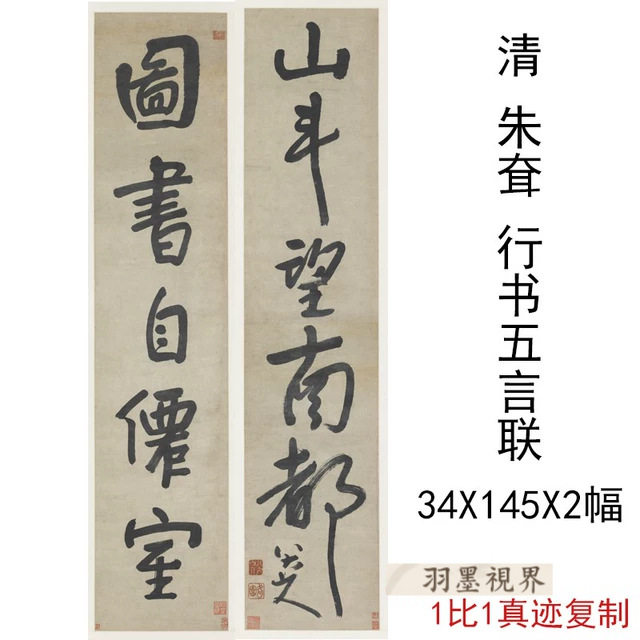 圖書自僊室
山斗望南都
八大山人
清 朱耷 行书五言联
34X145X2幅
羽墨視界
1比1真迹复制